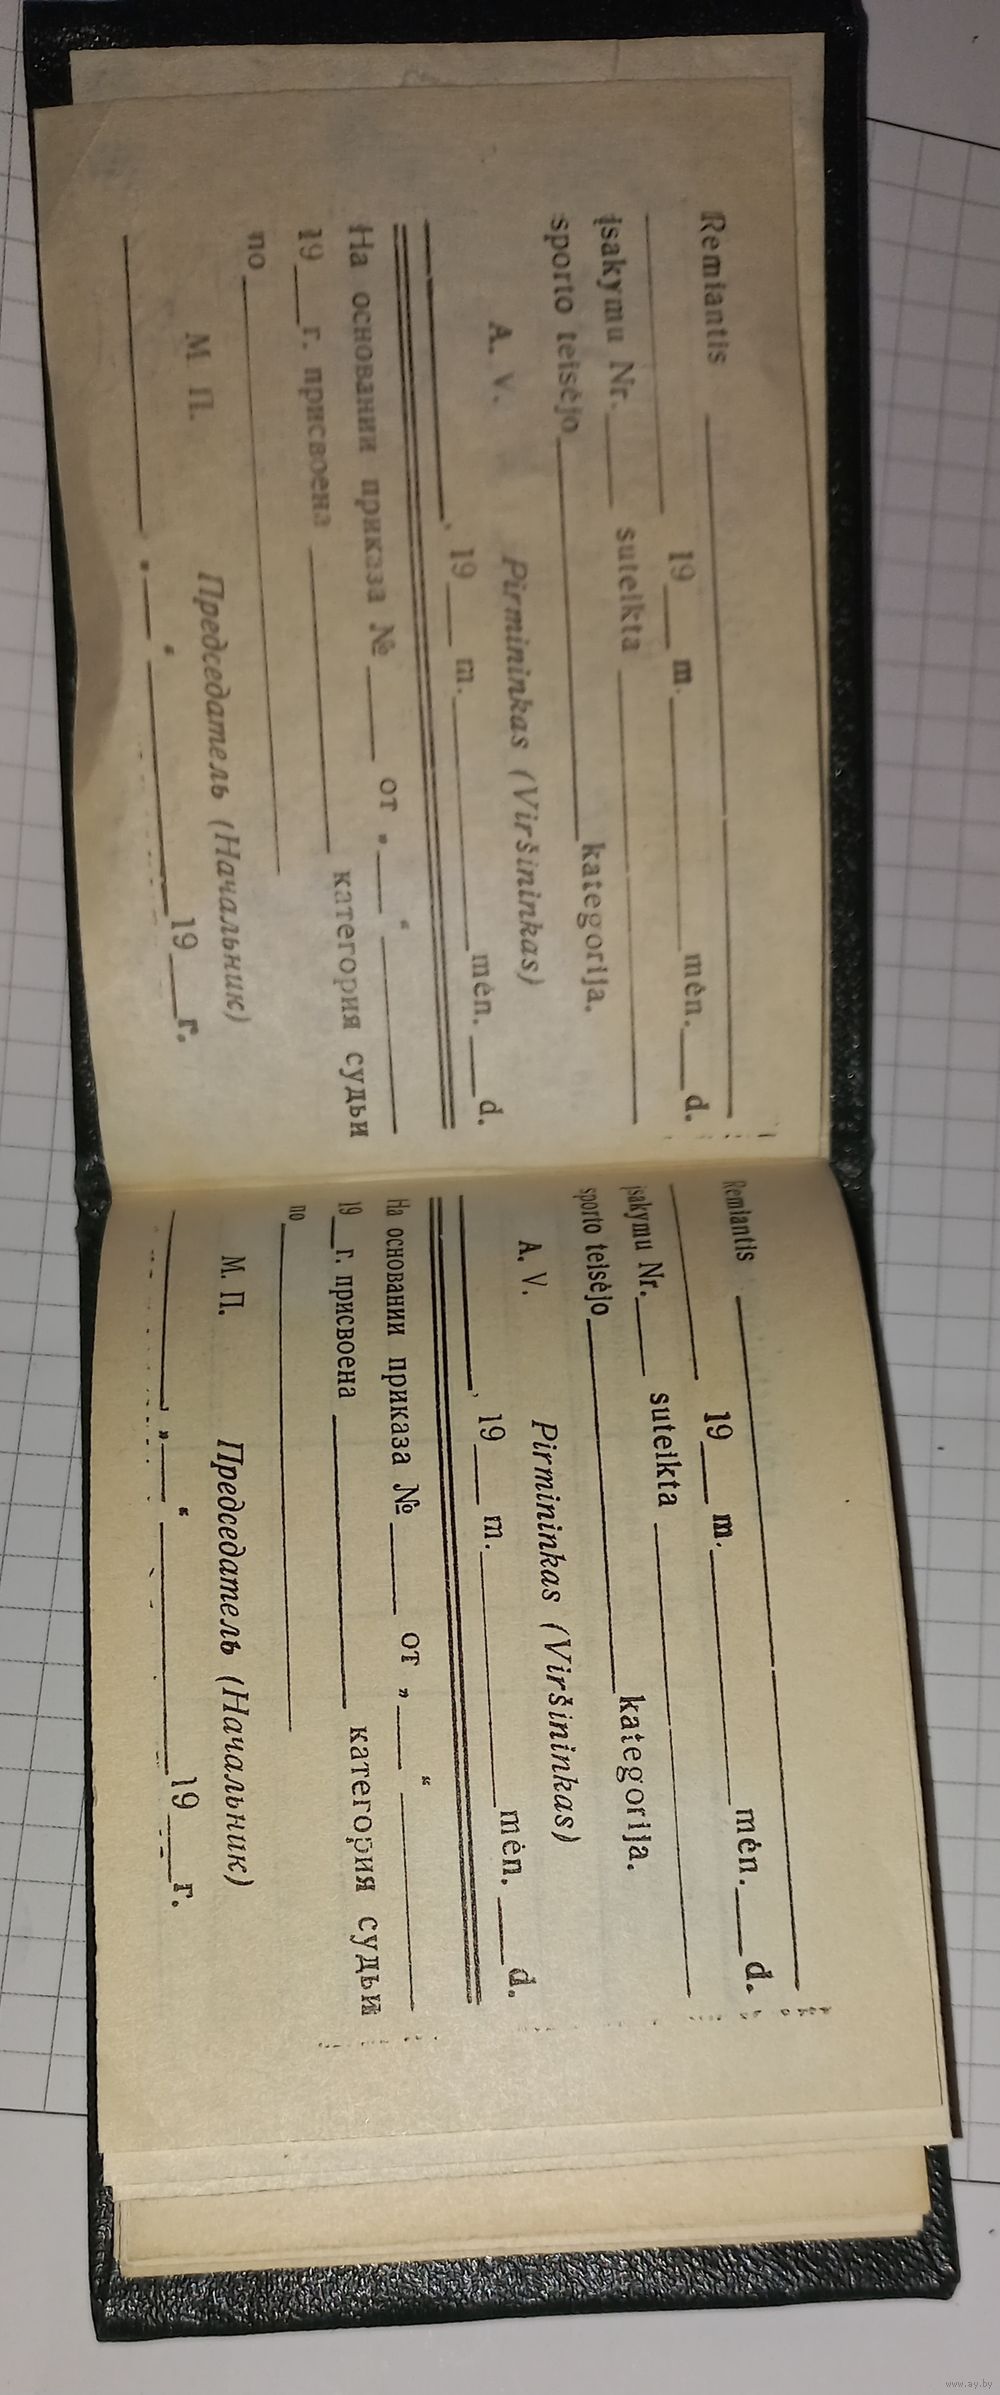 Remiantis ____________
____________ 19___ m. ____________ mėn. ___ d.
įsakymu Nr. ____ suteikta ____________
sporto teisėjo ____________ kategorija.
A. V. Pirmininkas (Viršininkas)
____________, 19___ m. ____________ mėn. ___ d.
На основании приказа № ____ от „___“ ____________
19___ г. присвоена ____________ категория судьи
по ____________
М П. Председатель (Начальник)
____________, „___“ ____________ 19___ г.
Remiantis ____________
____________ 19___ m. ____________ mėn. ___ d.
įsakymu Nr. ____ suteikta ____________
sporto teisėjo ____________ kategorija.
A. V. Pirmininkas (Viršininkas)
____________, 19___ m. ____________ mėn. ___ d.
На основании приказа № ____ от „___“ ____________
19___ г. присвоена ____________ категория судьи
по ____________
М. П. Председатель (Начальник)
____________, „___“ ____________ 19___ г.
www.ay.by